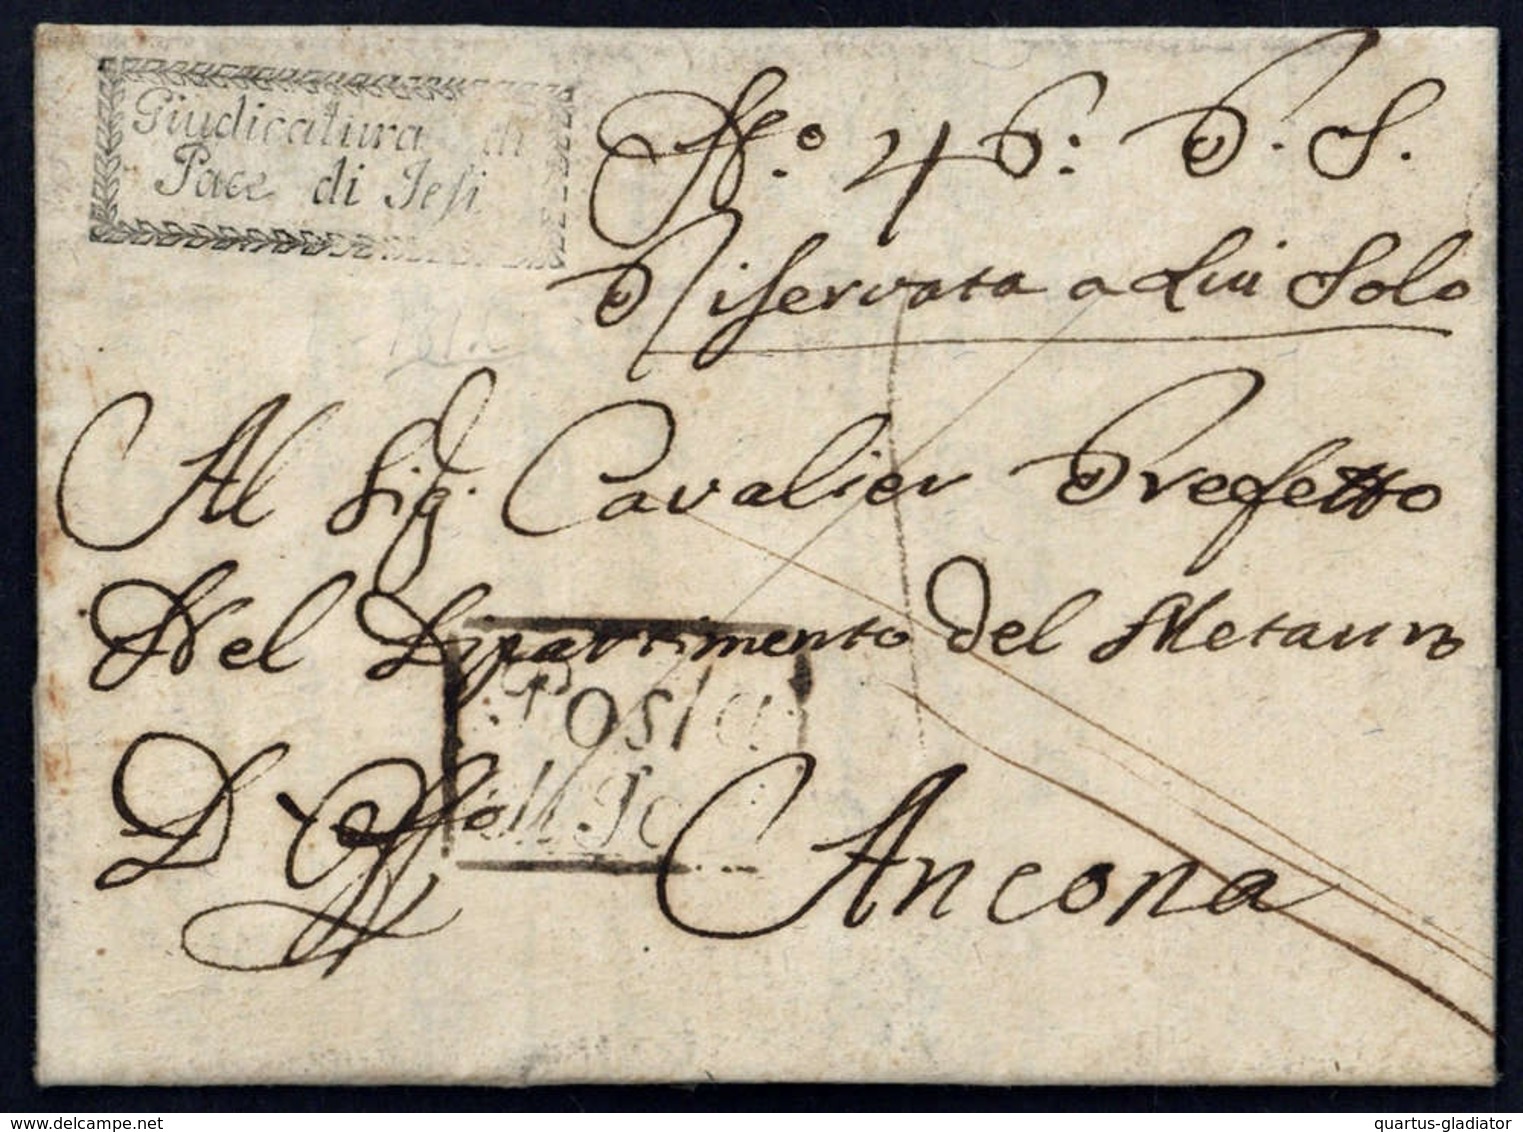 Giudicatura di
Pace di Jesi
N.º 46: P. S.
Riservata a Lui Solo
Al Sig. Cavalier Prefetto
Nel Dipartimento del Metauro
Posta
Ancona
delcampe.net
quartus-gladiator